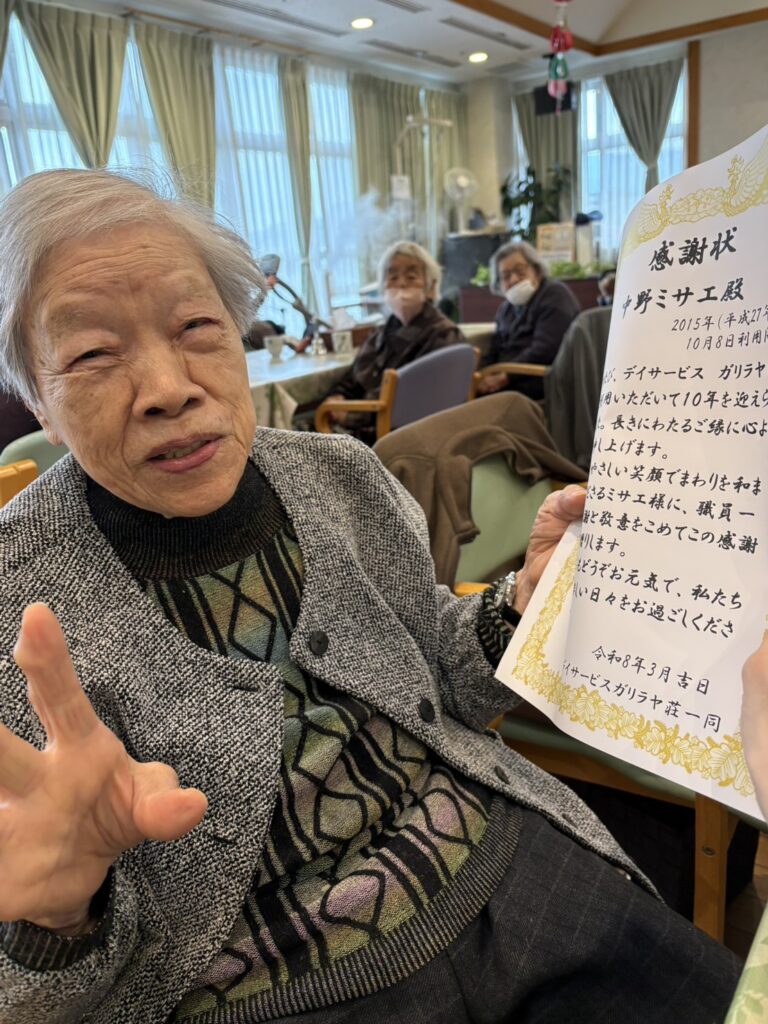 感謝状
中野ミサエ殿
2015年(平成27年
10月8日利用
び、デイサービス ガリラヤ
用いただいて10年を迎えら
。長きにわたるご縁に心よ
し上げます。
やさしい笑顔でまわりを和ま
ださるミサエ様に、職員一
謝と敬意をこめてこの感謝
りします。
もどうぞお元気で、私たち
しい日々をお過ごしくださ
令和8年3月吉日
デイサービスガリラヤ荘一同